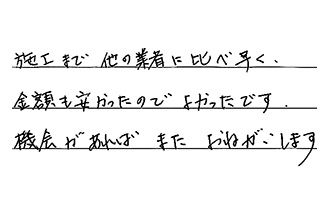 施工まで他の業者に比べ早く、
金額も安かったのでよかったです.
機会があればまたおねがいします